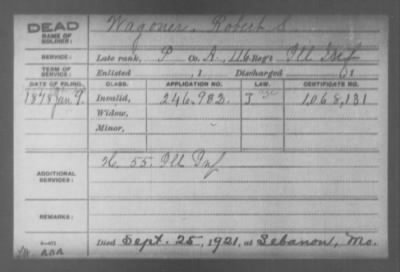 DEAD
NAME OF SOLDIER:
Wagoner, Robert S.
SERVICE:
Late rank, P Co. A, 116 Reg't Ill Inf
TERM OF SERVICE:
Enlisted , 1 Discharged , 1
DATE OF FILING. CLASS. APPLICATION NO. LAW. CERTIFICATE NO.
1878 Jan 9. Invalid, 246.982. J 1,068,131
Widow,
Minor,
ADDITIONAL SERVICES:
K. 55. Ill Inf
REMARKS:
Died Sept. 25, 1921, at Lebanon, Mo.